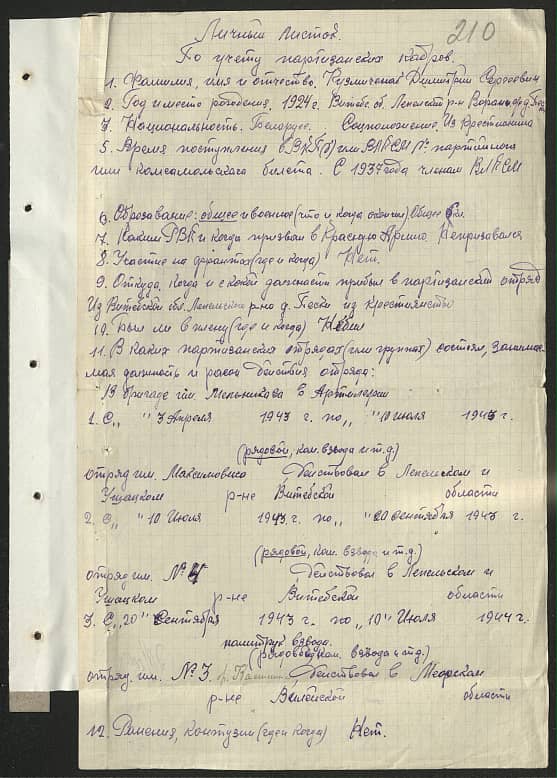 210
Личный листок.
По учету партизанских кадров.
1. Фамилия, имя и отчество. Кузмиченак Димитрий Сергеевич
2. Год и место рождения. 1924 г. Витебс. об. Лепелст р-н д.
3. Национальность. Беларус. Соцположение. Из Крестианина
5. Время поступления в ВКП(б) или ВЛКСМ № партийного
или комсомольскага билета. С 1937 года членам ВЛКСМ
6. Образование: общее и военное (что и когда окончил) Общее 6 кл.
7. Каким РВК и когда призван в Красную Армию. Непризовался
8. Участие на фронтах (где и когда) Нет.
9. Откуда, когда и с какой должности прибыл в партизанский отряд
Из Витебской обл. Лепельскаго р-на д. Пески из крестианства
10. Был ли в плену (где и когда) Небыл
11. В каких партизанских отрядах (или группах) состоял, занимае-
мая должность и район действия отряда:
В бригаде им. Мельникова в Артилерии
1. С „ " 3 Апреля 1943 г. по „ " 10 июля 1943 г.
(рядовой, ком. взвода и т.д.)
отряд им. Максимовича действовал в Лепельском и
Ушацком р-не Витебской области
2. С „ " 10 Июля 1943 г. по „ " 20 сентября 1943 г.
(рядовой, ком. взвода и т.д.)
отряд им. № 4 действовал в Лепельском и
Ушацком р-не Витебской области
3. С „20" Сентября 1943 г. по „10" Июля 1944 г.
политрук взвода.
(рядовой, ком. взвода и т.д.)
отряд им. № 3. действовал в Меорском
р-не Вилейской области
12. Ранения, контузии (где и когда) Нет.